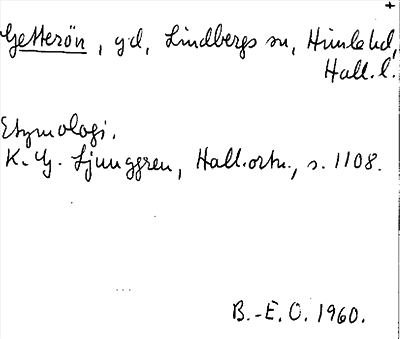 +
Getterön, gd, Lindbergs sn, Himle hd,
Hall. l.
Etymologi.
K. G. Ljunggren, Hall. ortn., s. 1108.
B.-E. O. 1960.